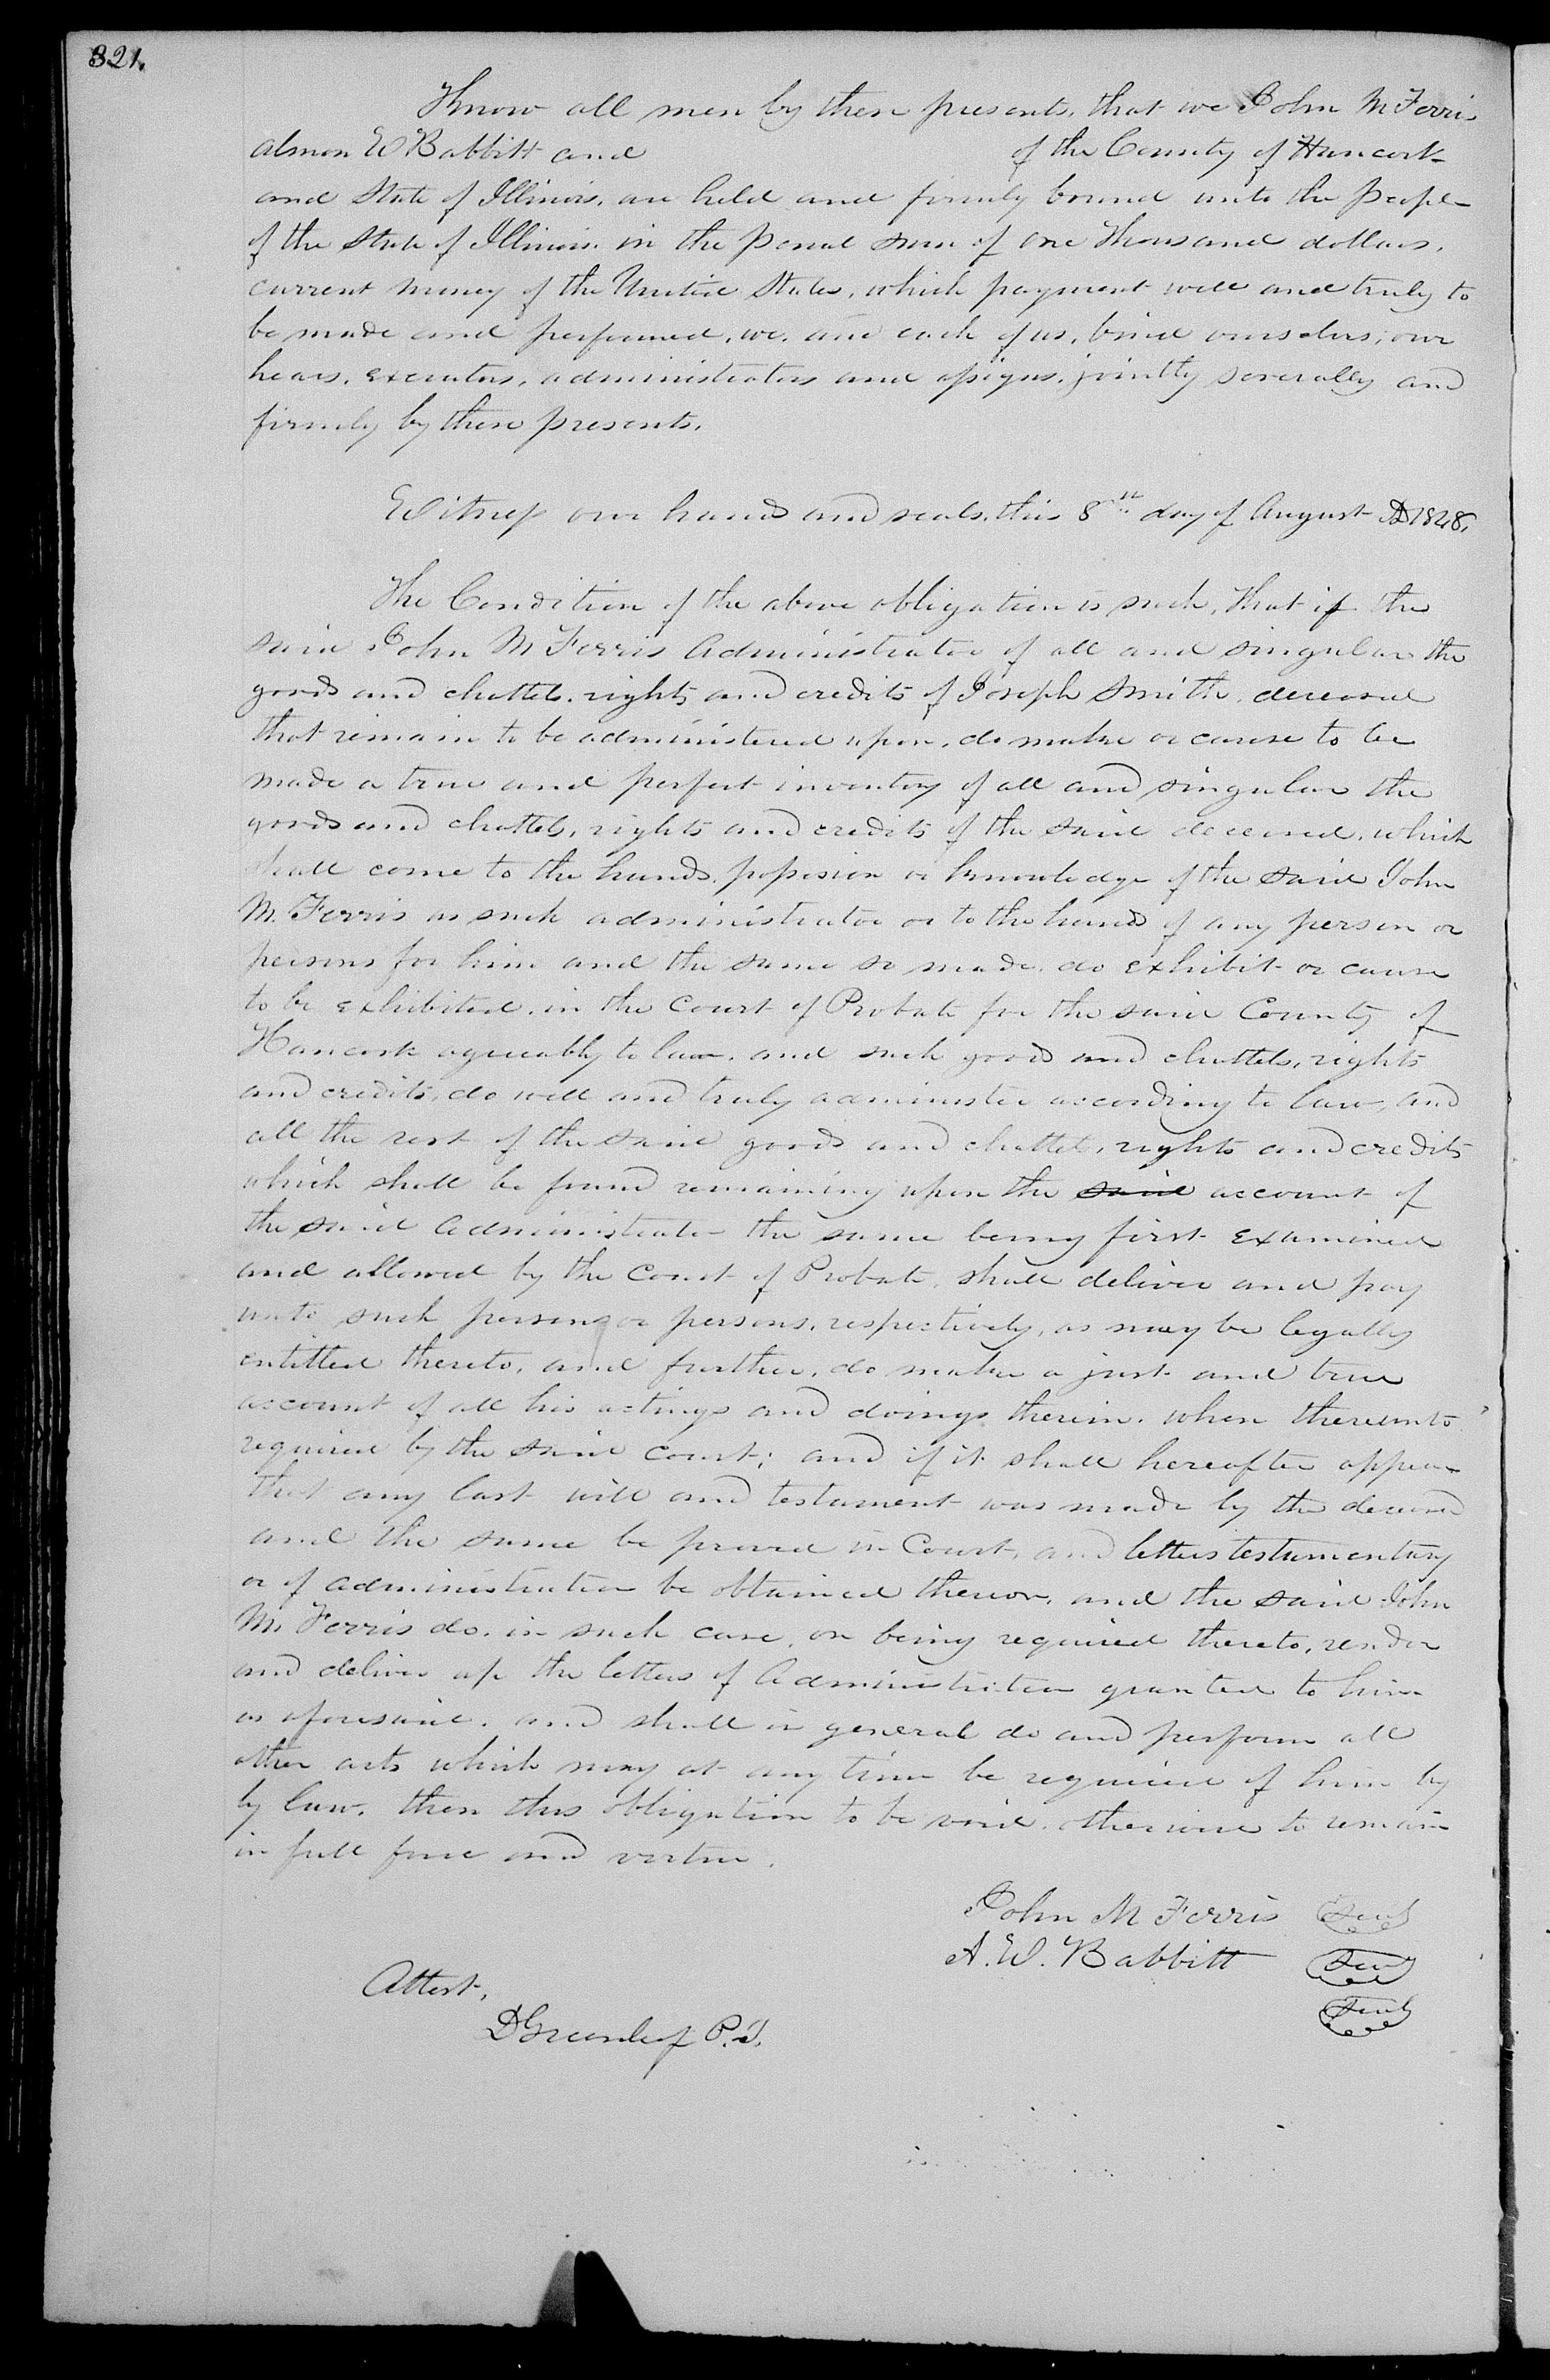 321.
Know all men by these presents, that we John M Ferris
Almon W Babbitt and of the County of Hancock
and State of Illinois, are held and firmly bound unto the People
of the State of Illinois. in the penal sum of one Thousand dollars,
current money of the United States, which payment well and truly to
be made and performed, we, and each of us, bind ourselves, our
hears, executors, administrators and assigns, jointly severally and
firmly by these presents.
Witness our hands and seals, this 8th day of August AD 1848,
The Condition of the above obligation is such, that if the
said John M Ferris Administrator of all and singular the
goods and chattels, rights and credits of Joseph Smith, deceased
that remain to be administered upon, do make or cause to be
made a true and perfect inventory of all and singular the
goods and chattels, rights and credits of the said deceased, which
shall come to the hands, possesion or knowledge of the said John
M. Ferris as such administrator or to the hands of any person or
persons for him and the same so made, do exhibit or cause
to be exhibited, in the Court of Probate for the said County of
Hancock agreeably to law, and such goods and chattels, rights
and credits, do well and truly administer according to law, and
all the rest of the said goods and chattels, rights and credits
which shall be found remaining upon the said account of
the said Administrator the same being first examined
and allowed by the Court of Probate, shall deliver and pay
unto such person or persons, respectively, as may be legally
entitled thereto, and further, do make a just and true
account of all his actings and doings therein, when thereunto
required by the said Court; and if it shall hereafter appear
that any last will and testament was made by the deceased
and the same be proved in Court, and letters testamentary
or of administration be obtained thereon, and the said John
M. Ferris do, in such case, on being required thereto, render
and deliver up the letters of Administration granted to him
as aforesaid, and shall in general do and perform all
other acts which may at any time be required of him by
by law, then this obligation to be void, otherwise to remain
in full force and virtue.
John M Ferris Seal
A. W. Babbitt Seal
Seal
Attest,
D Greenleaf P.J.